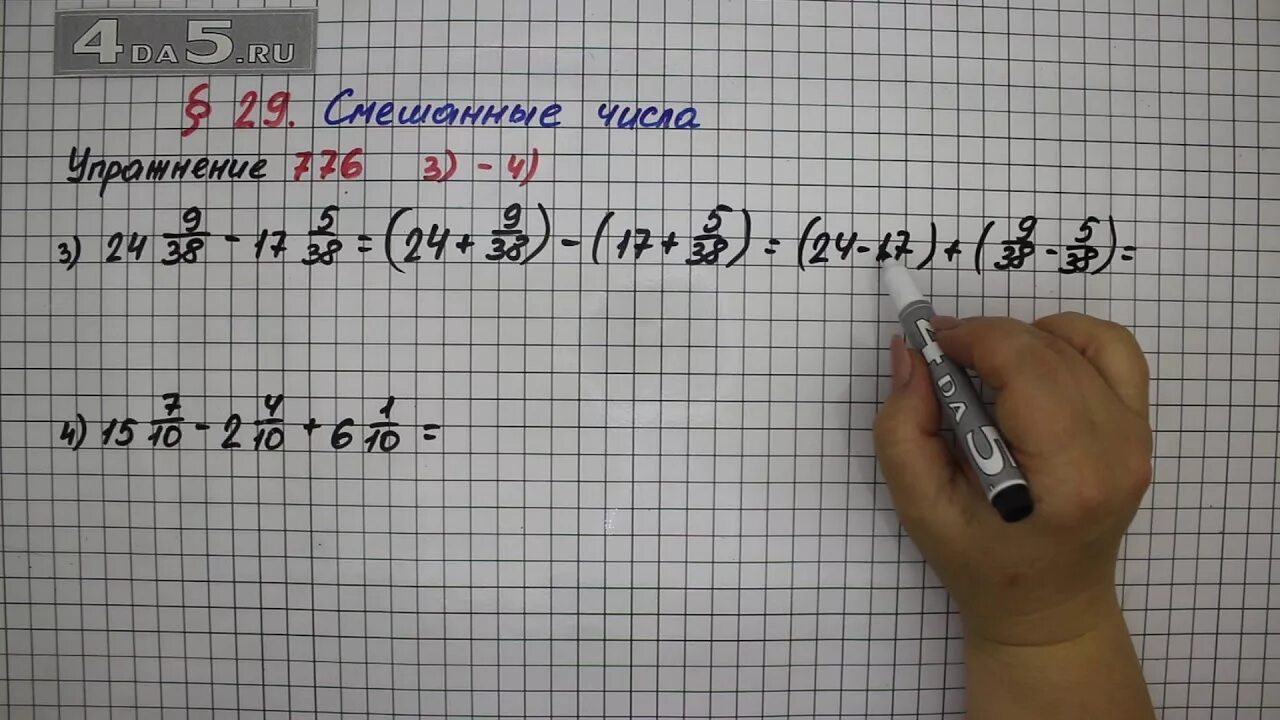 4DA5.RU
§ 29. Смешанные числа
Упражнение 776 3) - 4)
3) 24 9/38 - 17 5/38 = (24 + 9/38) - (17 + 5/38) = (24 - 17) + (9/38 - 5/38) =
4) 15 7/10 - 2 4/10 + 6 1/10 =
4DA5